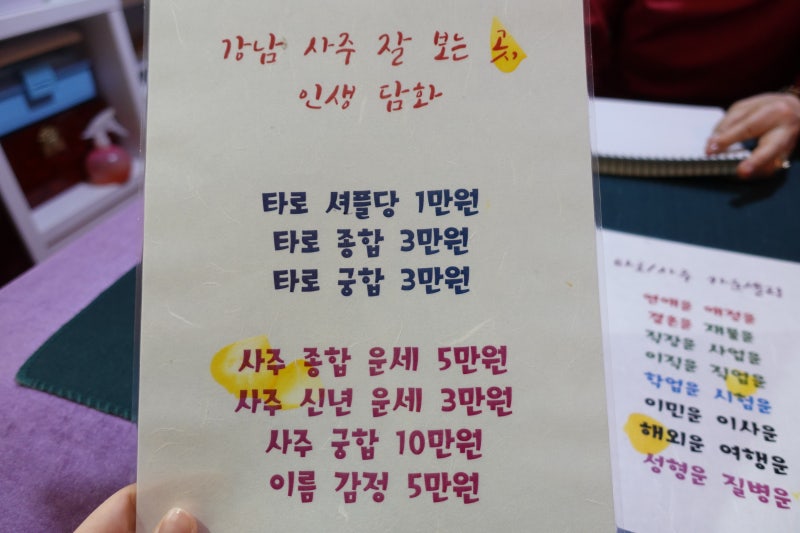 강남 사주 잘 보는 곳,
인생 담화
타로 셔플당 1만원
타로 종합 3만원
타로 궁합 3만원
사주 종합 운세 5만원
사주 신년 운세 3만원
사주 궁합 10만원
이름 감정 5만원
타로/사주 카운셀링
연애운 애정운
결혼운 재물운
직장운 사업운
이직운 직업운
학업운 시험운
이민운 이사운
해외운 여행운
성형운 질병운